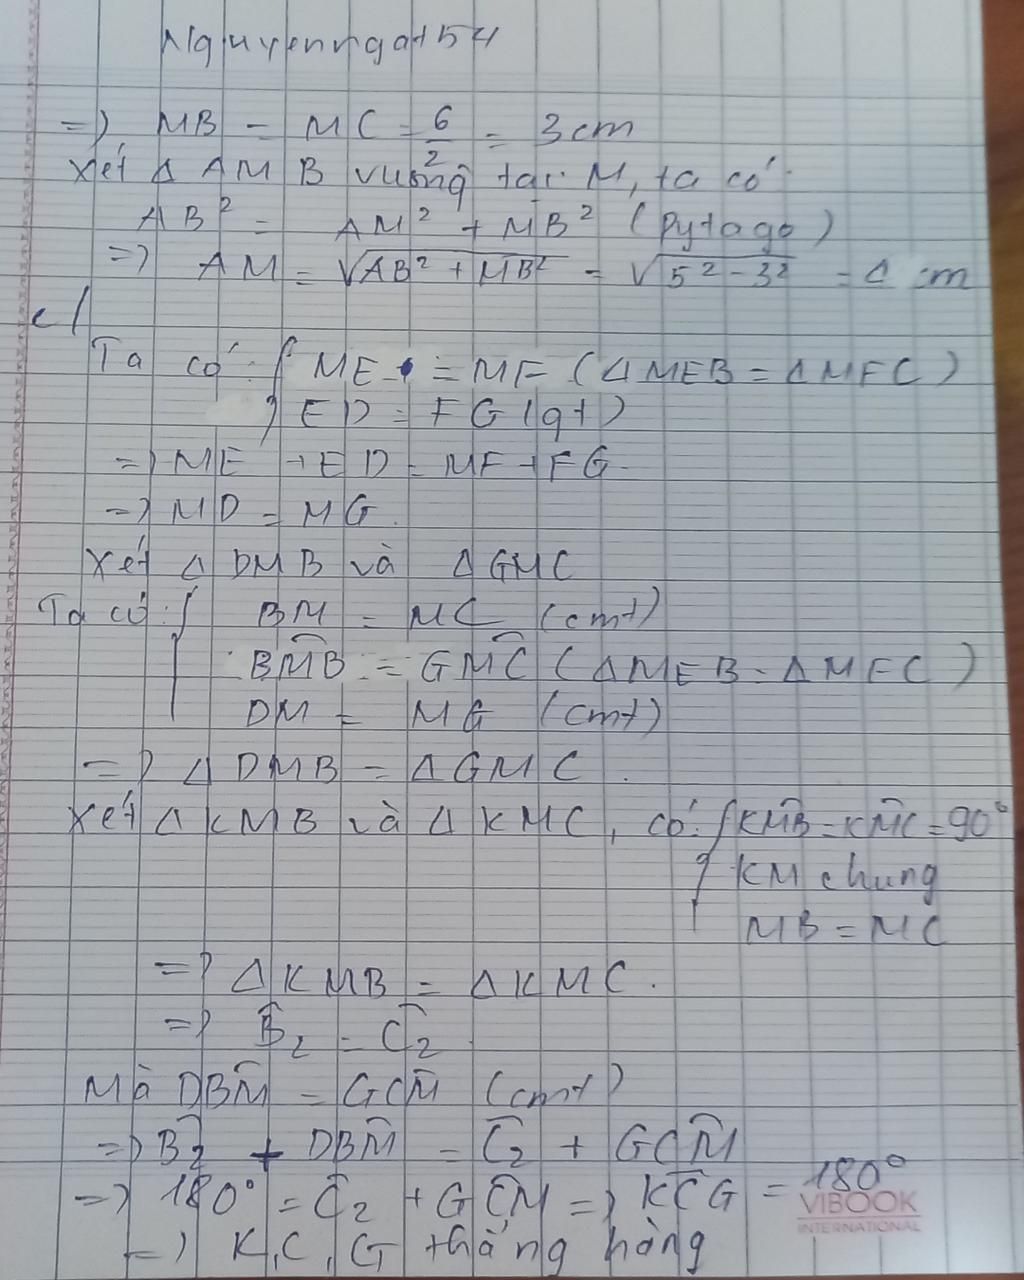 Nguyennga154
=> MB = MC = 6/2 = 3cm
Xét Δ AMB vuông tại M, ta có:
AB² = AM² + MB² (Pytago)
=> AM = √AB² + MB² = √5² - 3² = 4 cm
c/
Ta có: { ME = MF (ΔMEB = ΔMFC)
ED = FG (gt)
=> ME + ED = MF + FG
=> MD = MG.
Xét Δ DMB và Δ GMC
Ta có: { BM = MC (cmt)
BM̂B = GM̂C (ΔMEB = ΔMFC)
DM = MG (cmt)
=> Δ DMB = Δ GMC.
Xét Δ KMB và Δ KMC, có: { KM̂B = KM̂C = 90°
KM chung
MB = MC
=> Δ KMB = Δ KMC.
=> B̂₂ = Ĉ₂
Mà DBM̂ = GCM̂ (cmt)
=> B̂₂ + DBM̂ = Ĉ₂ + GCM̂
=> 180° = Ĉ₂ + GĈM => KĈG = 180°
=> K, C, G thẳng hàng
VIBOOK
INTERNATIONAL